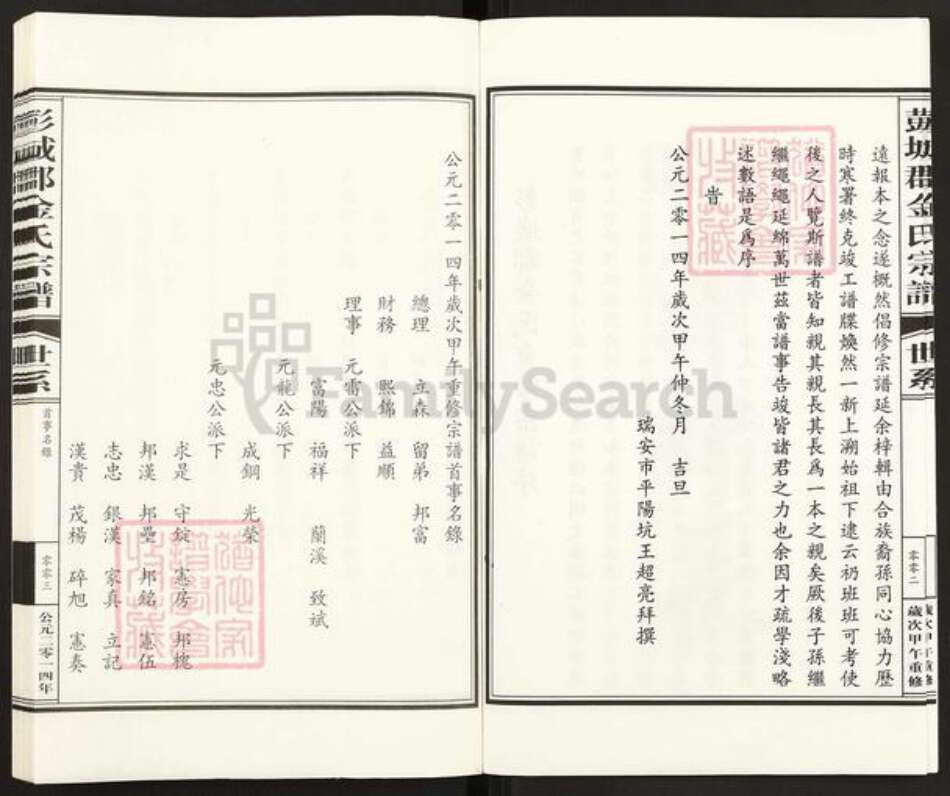 彭城郡金氏宗譜
世系
零零二
歲次甲午重修
遠報本之念遂概然倡修宗譜延余梓輯由合族裔孫同心協力歷
時寒暑終克竣工譜牒煥然一新上溯始祖下逮云礽班班可考使
後之人覽斯譜者皆知親其親長其長爲一本之親矣厥後子孫繼
繼繩繩延綿萬世茲當譜事告竣皆諸君之力也余因才疏學淺略
述數語是爲序
旹
公元二零一四年歲次甲午仲冬月 吉旦
瑞安市平陽坑王超亮拜撰
公元二零一四年歲次甲午重修宗譜首事名錄
總理 立森 留弟 邦富
財務 熙錦 益順
理事 元雷公派下
富陽 福祥 蘭溪 致斌
元龍公派下
成鋼 光榮
元忠公派下
求是 守錠 憲房 邦槐
邦漢 邦壘 邦銘 憲伍
志忠 銀漢 家真 立記
漢貴 茂楊 碎旭 憲奏
彭城郡金氏宗譜
世系
首事名錄
零零三
公元二零一四年
FamilySearch